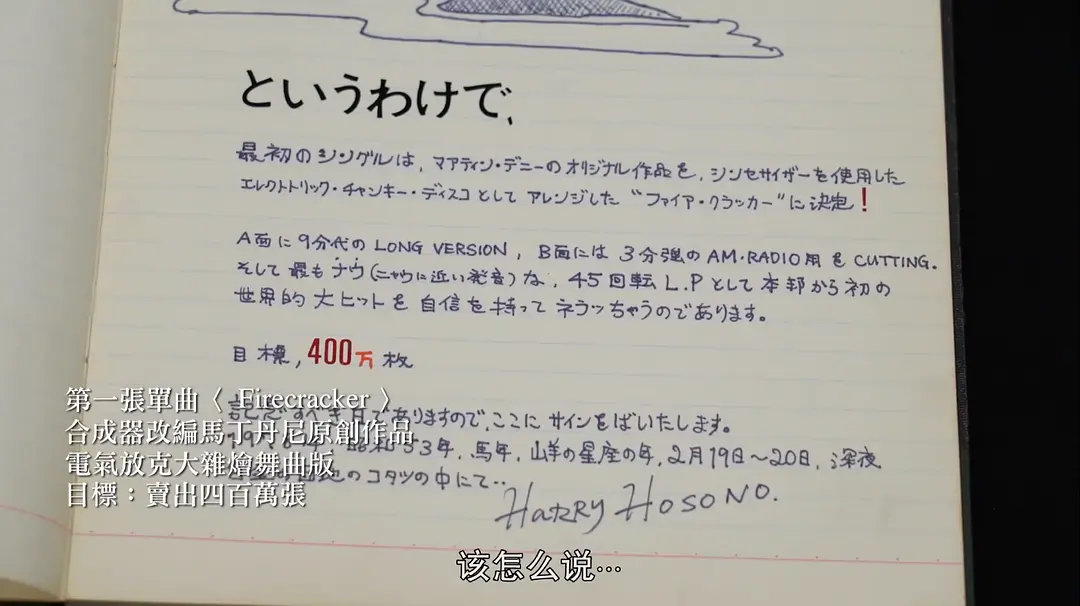 というわけで、
最初のシングルは、マアティン・デニーのオリジナル作品を、シンセサイザーを使用した
エレクトトリック・チャンキー・ディスコとしてアレンジした “ファイア・クラッカー”に決定!
A面に9分代のLONG VERSION, B面には3分強のAM・RADIO用をCUTTING.
そして最もナウ(ニャウに近い発音)な、45回転L.Pとして本邦から初の
世界的大ヒットを自信を持ってネラッちゃうのであります。
目標,400万枚
記念すべき日でありますので、ここにサインをばいたします。
昭和53年,馬年,山羊の星座の年,2月19日〜20日,深夜
のコタツの中にて・・
HARRY HOSONO.
第一張單曲〈 Firecracker 〉
合成器改編馬丁丹尼原創作品
電氣放克大雜燴舞曲版
目標：賣出四百萬張
该怎么说…